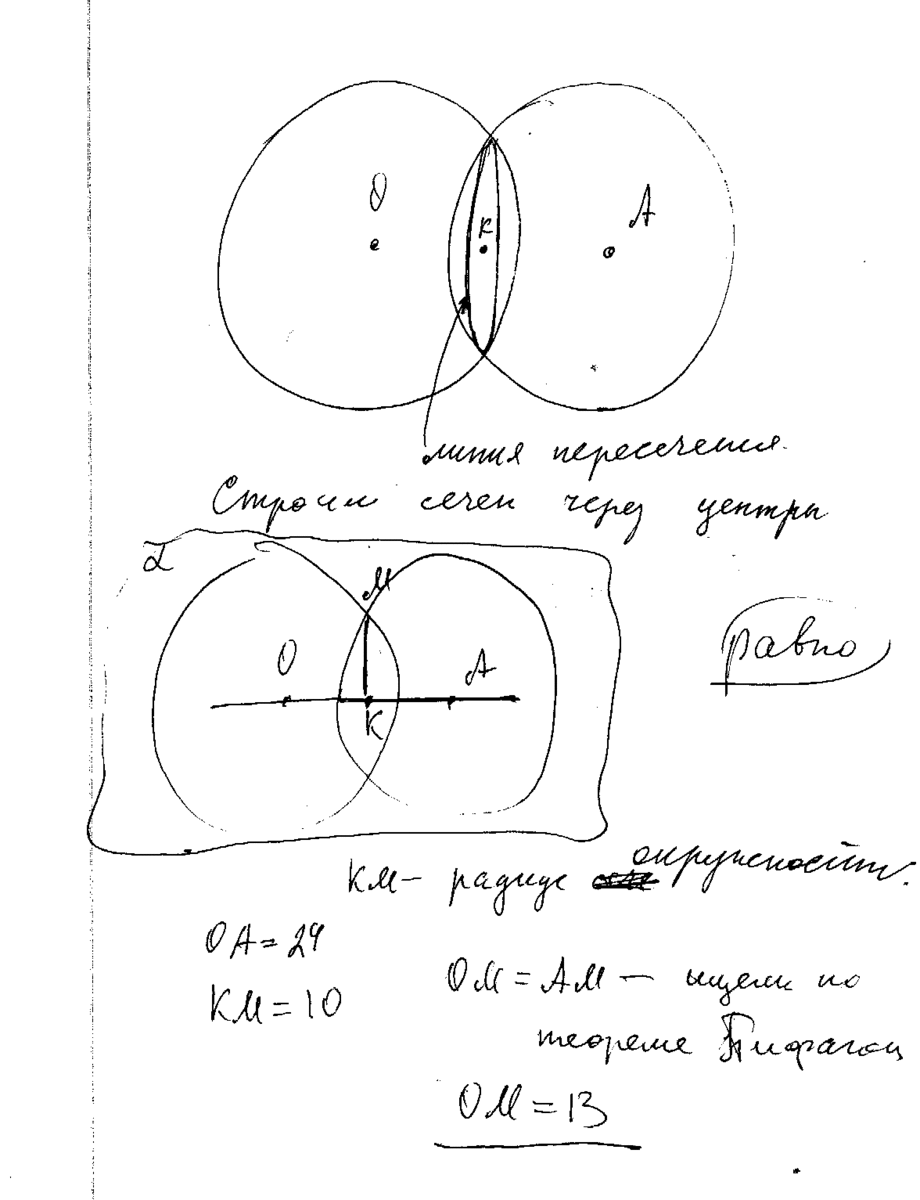 О
К
А
линия пересечения.
Строим сечен через центры
α
М
О
А
К
равно
КМ – радиус окружности.
ОА = 24
КМ = 10
ОМ = АМ – ищем по
теореме Пифагор
ОМ = 13